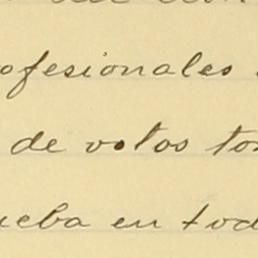 ofesionales
de votos to
ueba en tod